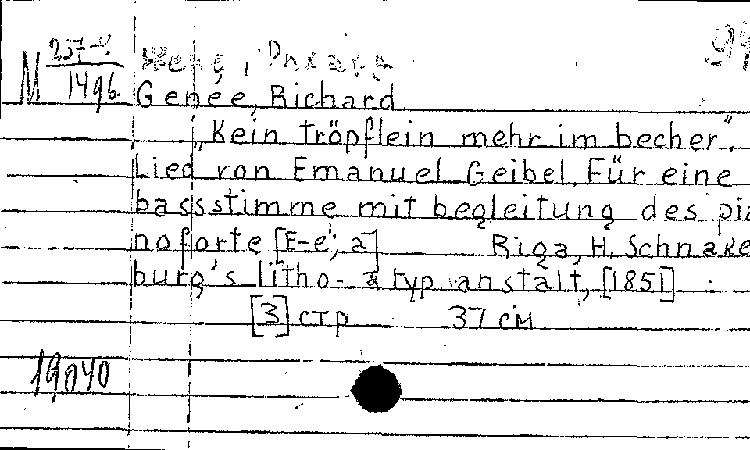 M 257-4/1496
Genée, Richard
„Kein tröpflein mehr im becher".
Lied von Emanuel Geibel. Für eine
bassstimme mit begleitung des pia
noforte [E-e', a] Riga, H. Schnake
burg's litho- & typ anstalt, [1851]
[3] стр 37 см
19040